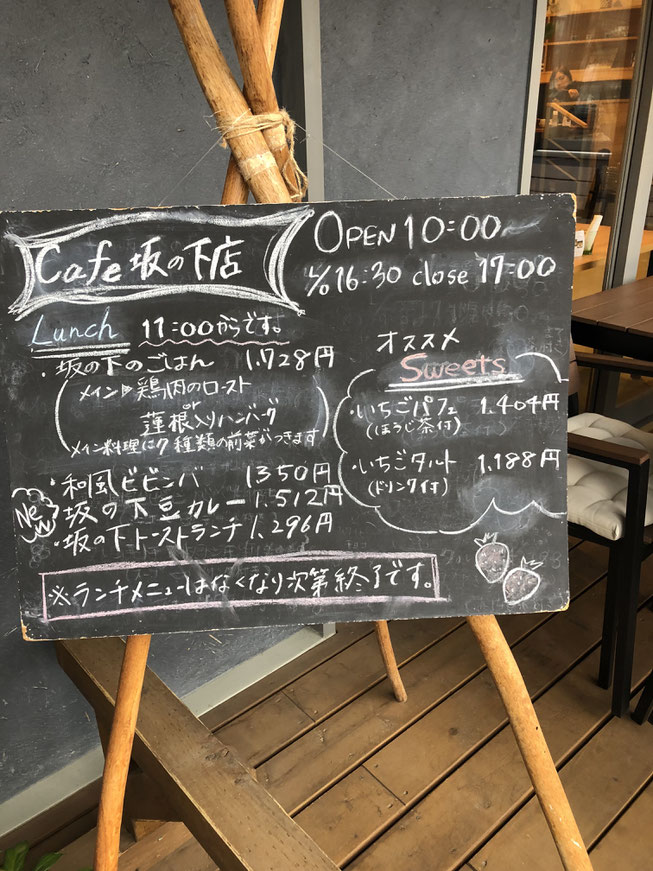 Cafe 坂の下店
OPEN 10:00
L/O 16:30 close 17:00
Lunch 11:00からです。
・坂の下のごはん 1.728円
メイン▶鶏肉のロースト
or
蓮根入りハンバーグ
メイン料理に7種類の前菜がつきます
・和風ビビンバ 1350円
New
・坂の下豆カレー 1.512円
・坂の下トーストランチ 1.296円
オススメ
Sweets
・いちごパフェ 1.404円
(ほうじ茶付)
・いちごタルト 1.188円
(ドリンク付)
※ランチメニューはなくなり次第終了です。